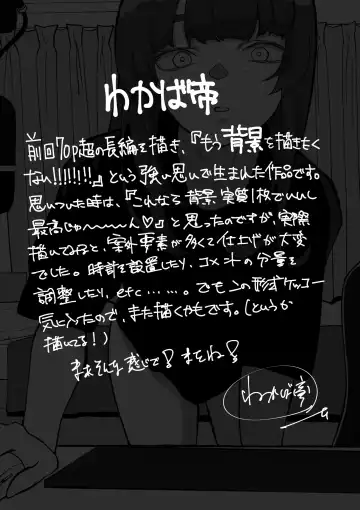 わかば帝
前回70p超の長編を描き、『もう背景を描きたく
ない!!!!!!!』という強い思いで生まれた作品です。
思いついた時は、『これなら背景実質1枚でいいし
最高じゃ〜〜〜ん♡』と思ったのですが、実際
描いてみると、案外要素が多くて仕上げが大変
でした。時計を設置したり、コメントの分量を
調整したり、etc……。でもこの形式ケッコー
気に入ったので、また描くかもです。(というか
描いてる!)
まあそんな感じで! またね!
わかば帝